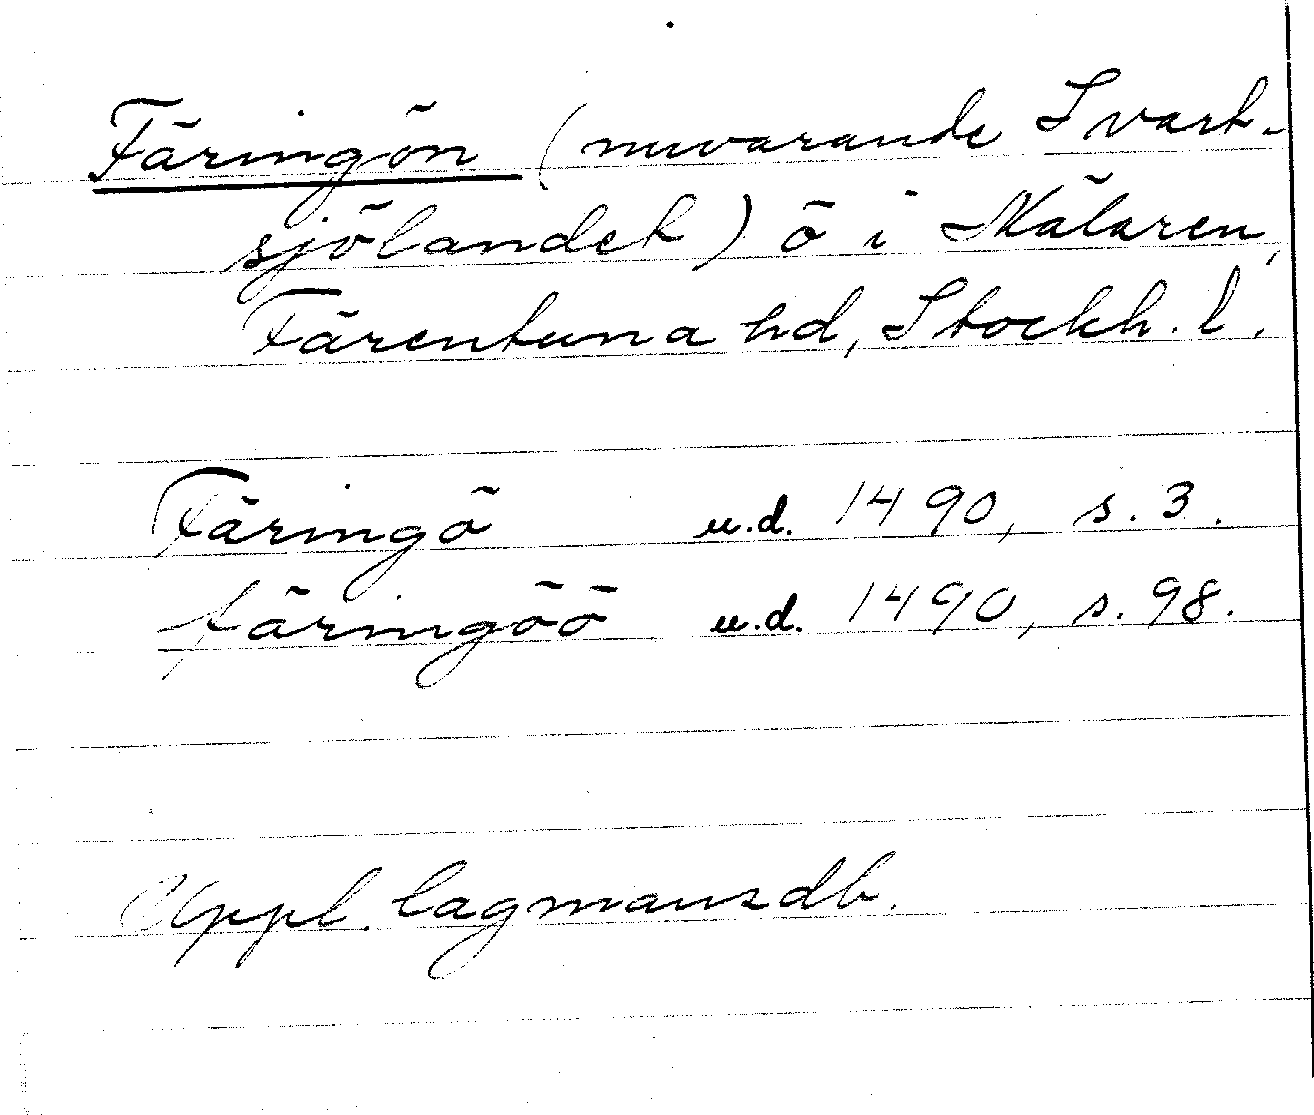 Färingön (nuvarande Svart-
sjölandet) ö i Mälaren,
Färentuna hd, Stockh. l.
Färingö u.d. 1490, s. 3.
färingöö u.d. 1490, s. 98.
Uppl. lagmansdb.